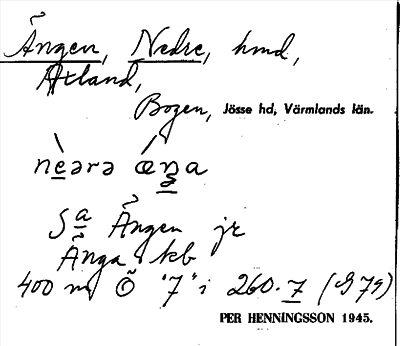 Ängen, Nedre, hmd,
Åtland,
Bogen, Jösse hd, Värmlands län.
nèərə ǽŋa
Sa Ängen jr
Änga kb
400 m Ö "7" i 260.7 (G79)
PER HENNINGSSON 1945.